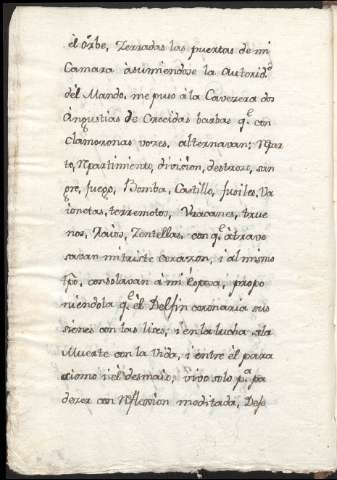 el órbe, Zerradas las puertas de mi
Camara àsumiendose la Autorid.º
del Mando, me puso à la Cavezera dos
Angustias de Crecidas barbas q.e con
Clamorosas vozes, alternavan: Npar
to, Npartimiento, división, destrozo, san
gre, fuego, Bomba, Castillo, fusiles, Va
ionetas, terremotos, Vracanes, true
nos, Raios, Zentellas, con q.e àtrave
savan mi triste Corazon, i al mismo
tpo, consolavan à mi Esposa, propo
niendola q.e el Delfin coronaria sus
sienes con las lises, i en la lucha de la
Muerte con la Vida, i entre el para
sismo i el desmaio, vivo solo p.a pa
dezer con Nflexion meditada, Dese